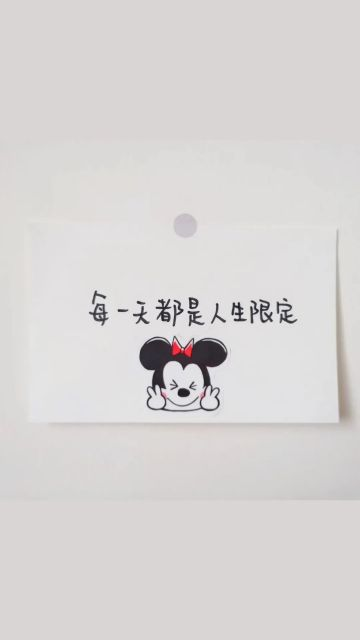 每一天都是人生限定